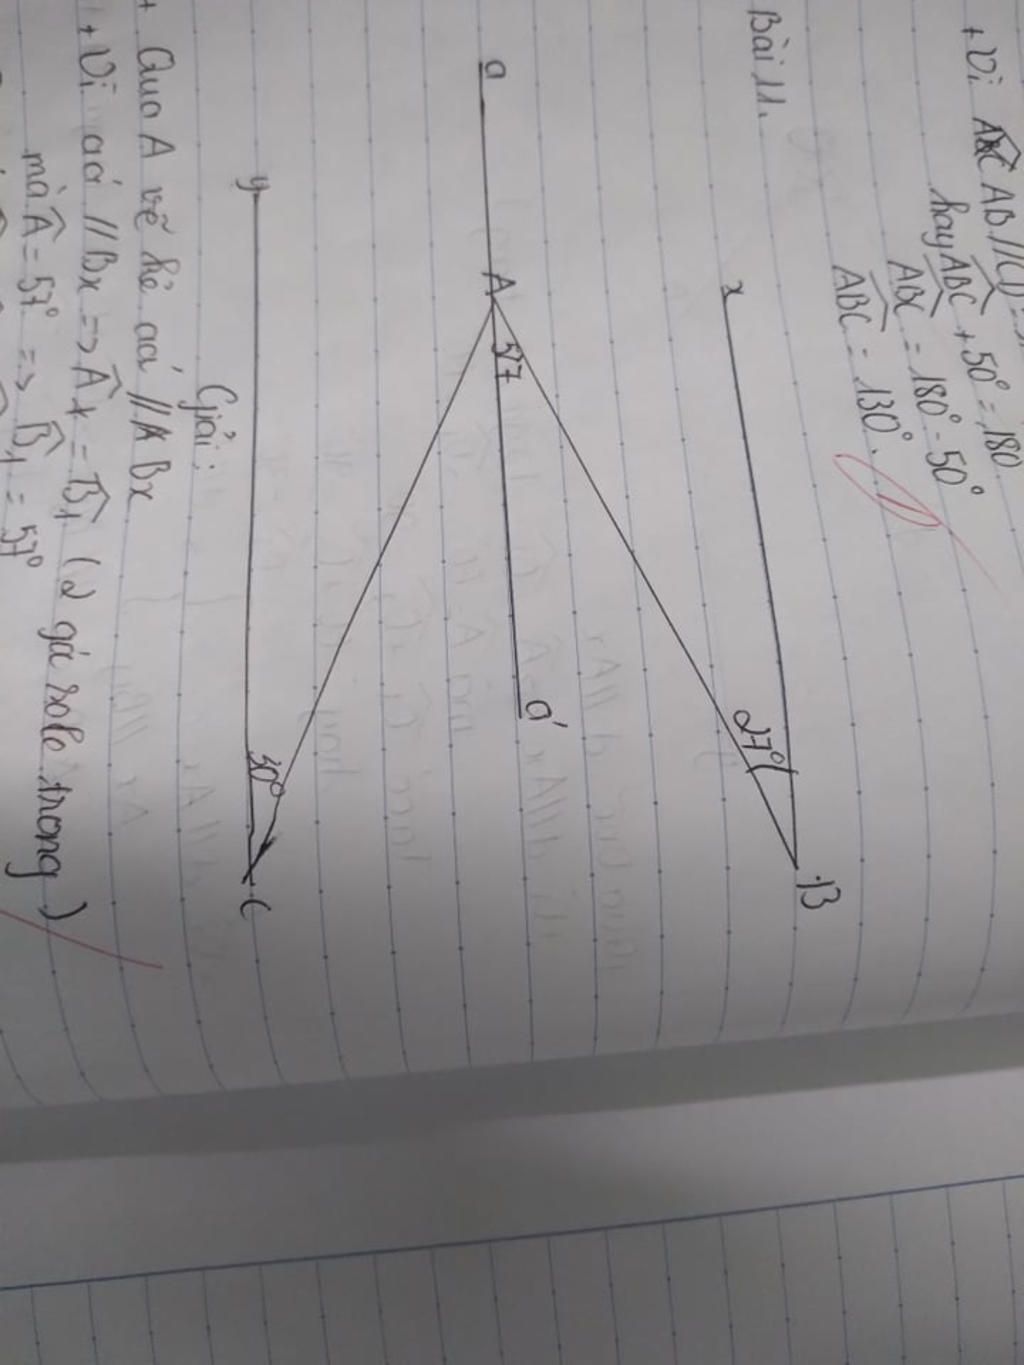 + Vì AB // CD =>
hay ABC + 50° = 180
ABC = 180° - 50°
ABC = 130°.
Bài 11.
x
27°
B
a
A
57
a'
y
30°
C
Giải:
+ Qua A vẽ kẻ aa' // Bx
+ Vì aa' // Bx => A1 = B1 (2 góc sole trong)
mà A = 57° => B1 = 57°